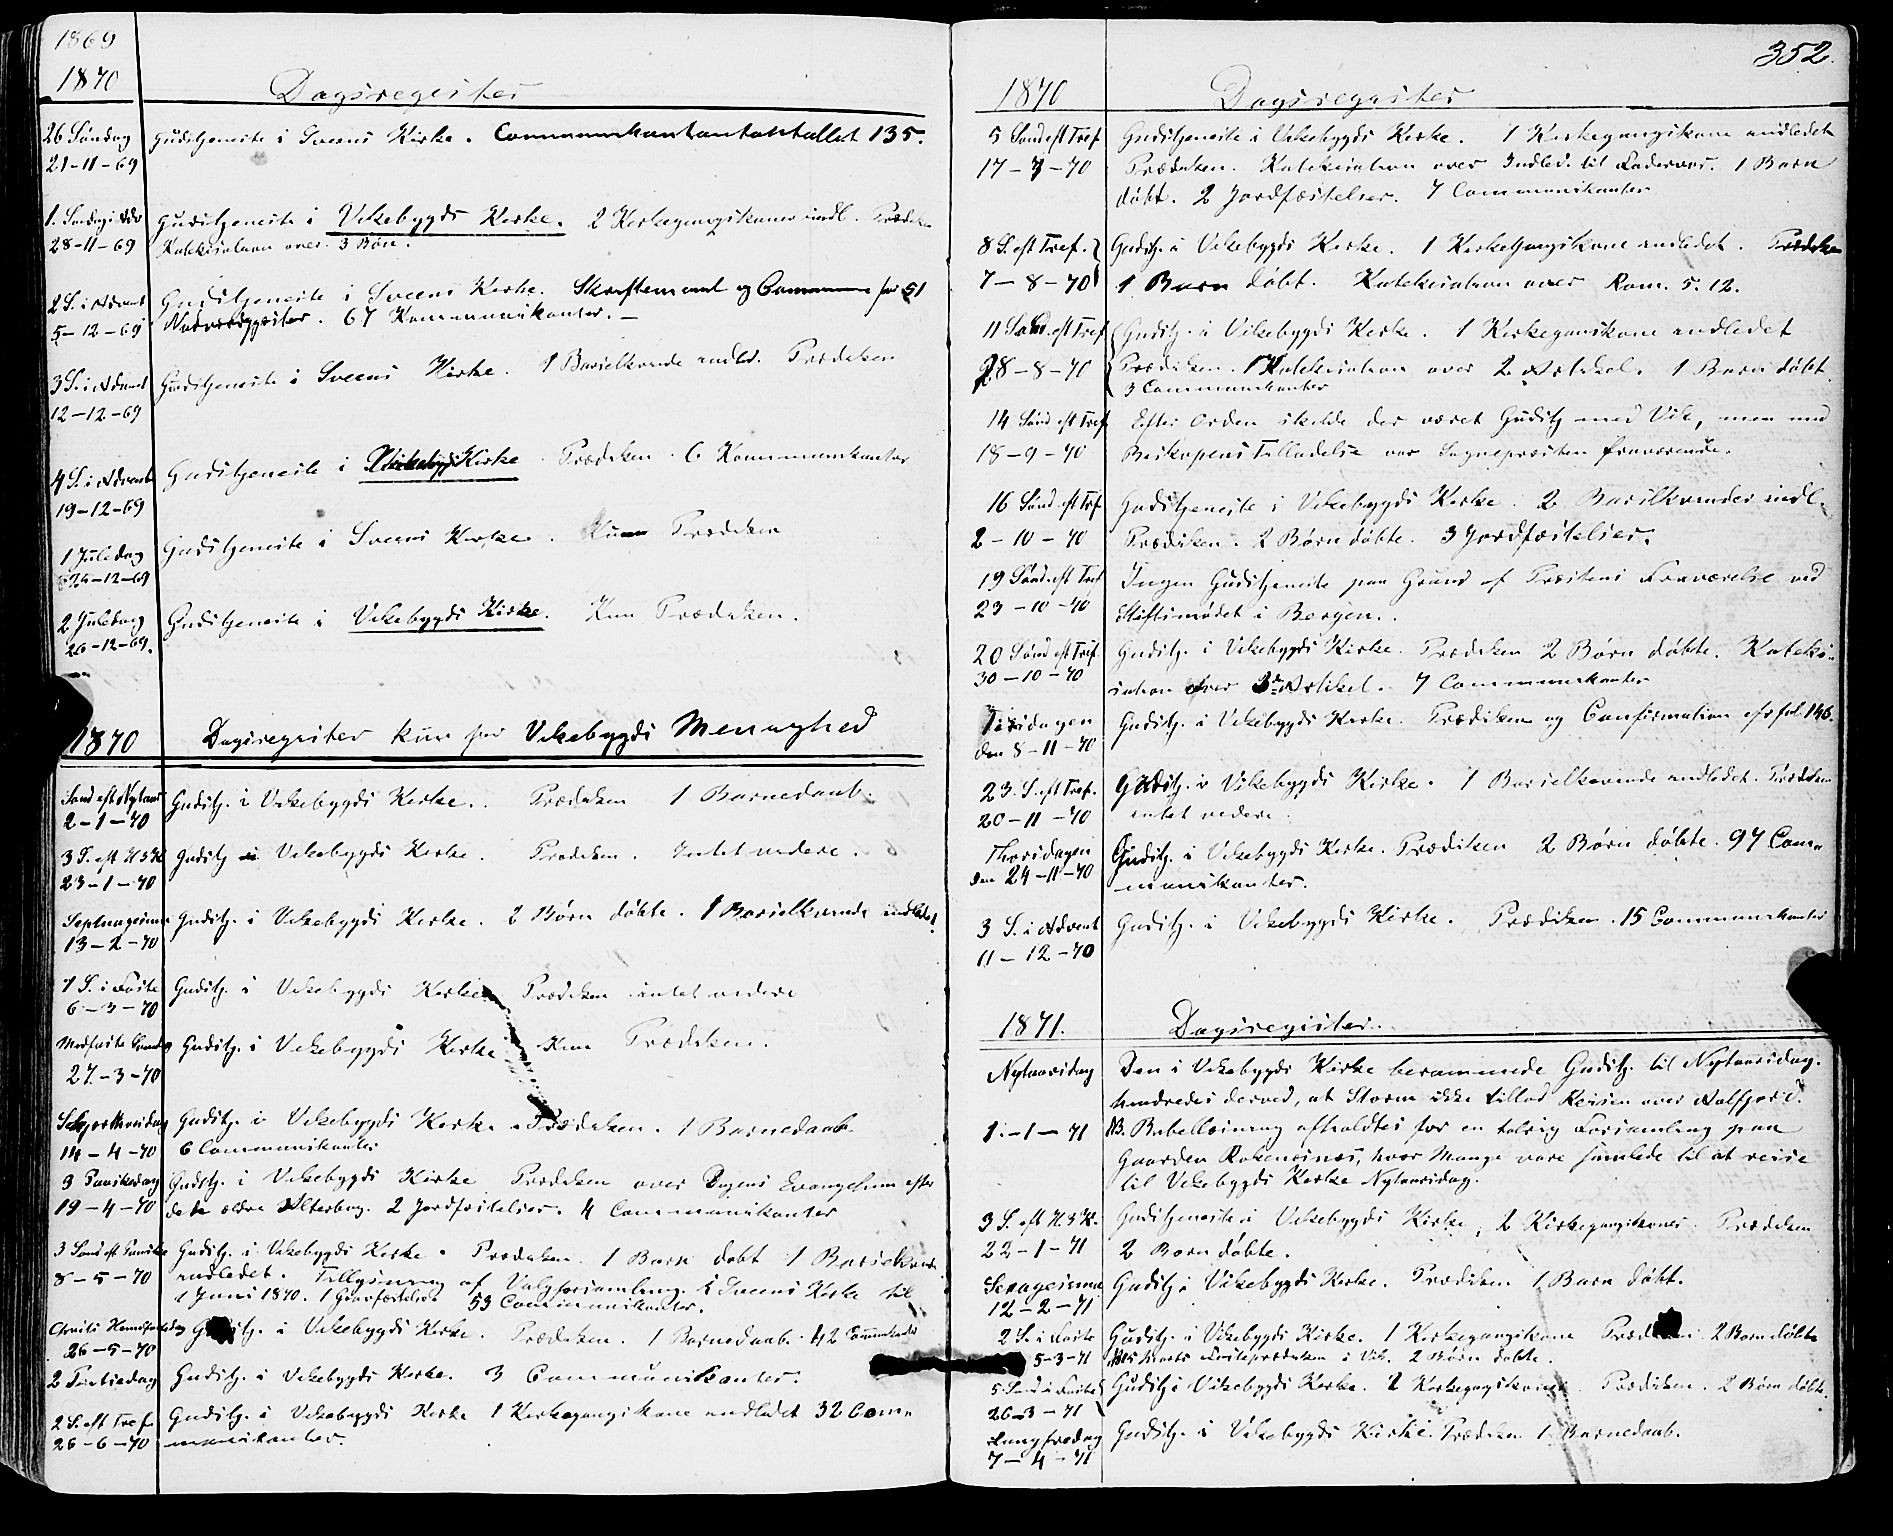 1869
1870
Dagsregister
26 Søndag Gudstjeneste i Sveens Kirke. Communikantantallet 135.
21-11-69
1. Søndag i Adv Gudstjeneste i Vikebygds Kirke. 2 Kirkegangskoner indl. Prædiken
28-11-69 Katekisation over 3 Bøn.
2 S. i Advent Gudstjeneste i Sveens Kirke. Skriftemaal og Commun for 51
5-12-69 67 Kommunikanter.
3 S. i Advent Gudstjeneste i Sveens Kirke. 1 Barselkvinde indled. Prædiken
12-12-69
4 S. i Advent Gudstjeneste i Vikebygds Kirke. Prædiken. 6 Kommunikanter
19-12-69
1 Juledag Gudstjeneste i Sveens Kirke. Kun Prædiken
25-12-69
2 Juledag Gudstjeneste i Vikebygds Kirke. Kun Prædiken.
26-12-69.
1870 Dagsregister kun for Vikebygds Menighed
Sønd eft Nytaar Gudstj. i Vikebygds Kirke. Prædiken 1 Barnedaab.
2-1-70
3 S. eft H3K Gudstj i Vikebygds Kirke. Prædiken. Intet videre.
23-1-70
Septuagesima Gudstj. i Vikebygds Kirke. 2 Børn døbte. 1 Barselkvinde indledet
13-2-70
1 S. i Faste Gudstj. i Vikebygds Kirke Prædiken intet videre
6-3-70
Midfaste Søndag Gudstj. i Vikebygds Kirke Kun Prædiken.
27-3-70
Skjærthorsdag Gudstj. i Vikebygds Kirke. Prædiken. 1 Barnedaab.
14-4-70 6 Communikanter
3 Paaskedag Gudstj. i Vikebygds Kirke Prædiken over Dagens Evangelium efter
19-4-70 den ældre Alterbog. 2 Jordfæstelser. 4 Communikanter
3 Sønd eft Paaske Gudstj. i Vikebygds Kirke. Prædiken. 1 Barn døbt 1 Barselkvinde
8-5-70 indledet. Tillysning af Valgforsamling i Sveens Kirke til
1 Juni 1870. 1 Jordfæstelse 53 Communikanter.
Christi Himmelfartsdag Gudstj. i Vikebygds Kirke. Prædiken. 1 Barnedaab. 42
26-5-70
2 Pintsedag Gudstj. i Vikebygds Kirke. 3 Communikanter.
2 S. eft Tref Gudstj. i Vikebygds Kirke 1 Kirkegangskone indledet 32 Com-
26-6-70 munikanter.
352.
1870 Dagsregister
5 Sønd eft Tref Gudstjeneste i Vikebygds Kirke. 1 Kirkegangskone indledet
17-7-70 Prædiken. Katekisation over Indled. til Fadervor. 1 Barn
døbt. 2 Jordfæstelser. 7 Communikanter
8 S. eft Tref. Gudstj. i Vikebygds Kirke. 1 Kirkegangskone indledet. Prædiken
7-8-70 1 Barn døbt. Katekisation over Rom. 5. 12.
11 Sønd. eft Tref Gudstj. i Vikebygds Kirke. 1 Kirkegangskone indledet
28-8-70 Prædiken. Katekisation over 2 Artikel. 1 Barn døbt.
3 Communikanter
14 Sønd eft Tref Efter Orden skulde der været Gudstj med Vik, men med
18-9-70 Biskopens Tilladelse var Sognepræsten fraværende.
16 Sønd eft Tref Gudstjeneste i Vikebygds Kirke. 2 Barselkvinder indl.
2-10-70 Prædiken. 2 Børn døbte. 3 Jordfæstelser.
19 Sønd. eft Tref Ingen Gudstjeneste paa Grund af Præstens Fraværelse ved
23-10-70 Stiftsmødet i Bergen.
20 Sønd eft Tref. Gudstj. i Vikebygds Kirke. Prædiken 2 Børn døbte. Kateki-
30-10-70 sation over 3die Artikel. 7 Communikanter
Tirsdagen Gudstj. i Vikebygds Kirke. Prædiken og Confirmation cfr fol 146.
den 8-11-70
23. S. eft Tref. Gudstj. i Vikebygds Kirke. 1 Barselkvinde indledet. Prædiken
20-11-70 intet videre.
Thorsdagen Gudstj. i Vikebygds Kirke. Prædiken 2 Børn døbte. 97 Com-
den 24-11-70 munikanter.
3 S. i Advent Gudstj. i Vikebygds Kirke. Prædiken. 15 Communikanter
11-12-70
1871. Dagsregister.
Nytaarsdag Den i Vikebygds Kirke berammede Gudstj. til Nytaarsdag
hindredes derved, at Storm ikke tillod Reisen over Aalfjord.
1-1-71 NB. Bibellæsning afholdtes for en talrig Forsamling paa
Gaarden Rokenesnæs, hvor Mange vare samlede til at reise
til Vikebygds Kirke Nytaarsdag.
3 S. eft H3K. Gudstjeneste i Vikebygds Kirke, 2 Kirkegangskoner. Prædiken
22-1-71 2 Børn døbte.
Sexagesima Gudstj i Vikebygds Kirke. Prædiken 1 Barn døbt.
12-2-71
2 S. i Faste Gudstj. i Vikebygds Kirke. 1 Kirkegangskone Prædiken. 2 Børn døbte
5-3-71 Marts Fasteprædiken i Vik. 2 Børn døbte.
5 Sønd i Faste Gudstj i Vikebygds Kirke. 2 Kirkegangskoner. Prædiken. 2 Børn døbte.
26-3-71
Langfredag Gudstj. i Vikebygds Kirke. Prædiken 1 Barnedaab.
7-4-71